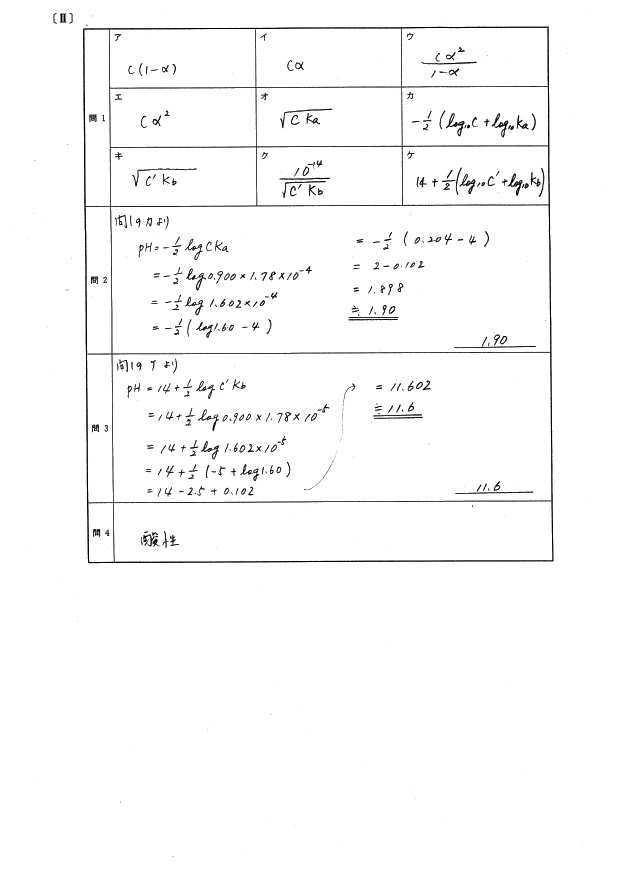 〔Ⅱ〕
問1
ア
C(1-α)
イ
Cα
ウ
Cα²/(1-α)
エ
Cα²
オ
√(C Ka)
カ
-1/2 (log₁₀C + log₁₀Ka)
キ
√(C' Kb)
ク
10⁻¹⁴/√(C' Kb)
ケ
14 + 1/2 (log₁₀C' + log₁₀Kb)
問2
問1のカより
pH = -1/2 log CKa
= -1/2 log 0.900 × 1.78 × 10⁻⁴
= -1/2 log 1.602 × 10⁻⁴
= -1/2 ( log 1.60 - 4 )
= -1/2 ( 0.204 - 4 )
= 2 - 0.102
= 1.898
≒ 1.90
1.90
問3
問1のケより
pH = 14 + 1/2 log C' Kb
= 14 + 1/2 log 0.900 × 1.78 × 10⁻⁵
= 14 + 1/2 log 1.602 × 10⁻⁵
= 14 + 1/2 (-5 + log 1.60)
= 14 - 2.5 + 0.102
= 11.602
≒ 11.6
11.6
問4
酸性